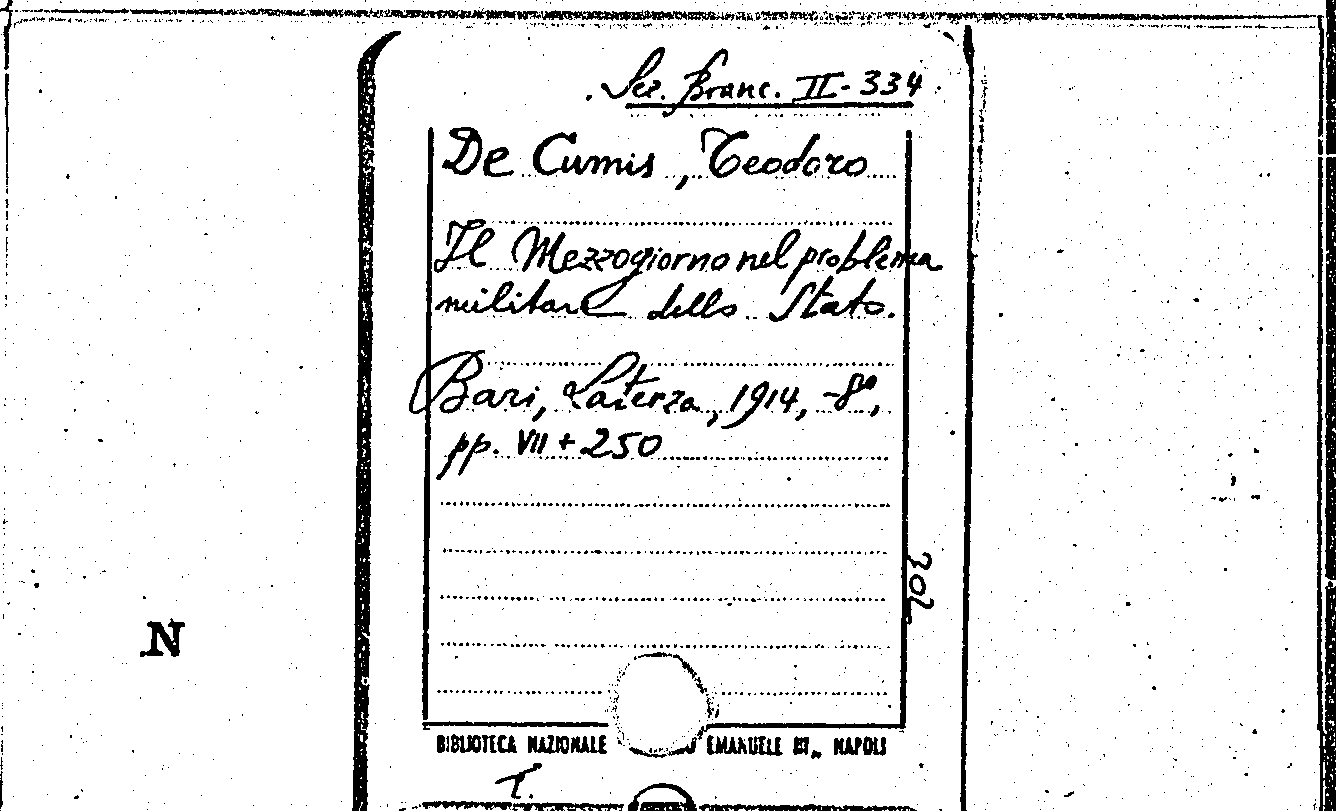 Sez. Branc. II-334
De Cumis, Teodoro
Il Mezzogiorno nel problema
militare dello Stato.
Bari, Laterza, 1914, -8º,
pp. VII + 250
302
N
BIBLIOTECA NAZIONALE EMANUELE III„ NAPOLI
T.